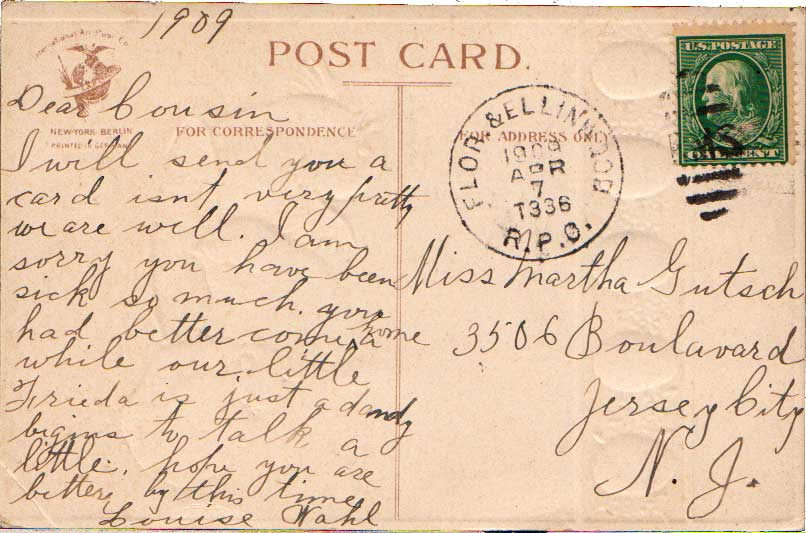 1909
International Art Publ. Co.
NEW-YORK BERLIN
PRINTED IN GERMANY
POST CARD.
FOR CORRESPONDENCE
FOR ADDRESS ONLY
U.S. POSTAGE
ONE CENT
FLOR. & ELLINWOOD
1909
APR
7
T336
R.P.O.
Dear Cousin
I will send you a
card isnt very pretty
we are well. I am
sorry you have been
sick so much. you
had better come home
while our little
Frieda is just a dandy
begins to talk a
little. hope you are
better by this time
Louise Wahl
Miss Martha Gutsch
3506 Boulavard
Jersey City
N. J.